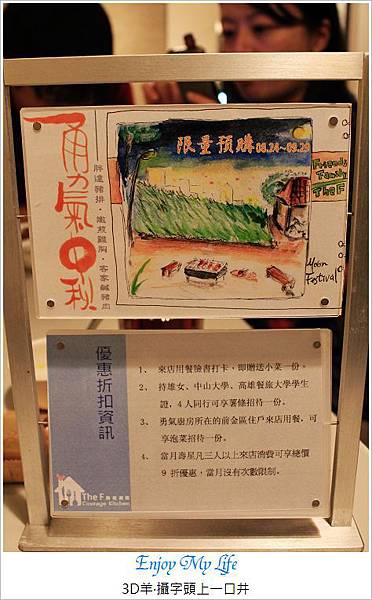 勇氣中秋
胖達豬排・嫩煎雞胸・客家鹹豬肉
限量預購 08.24~09.29
Friends
Family
The F
Moon
Festival
優惠折扣資訊
1、 來店用餐臉書打卡，即贈送小菜一份。
2、 持雄女、中山大學、高雄餐旅大學學生
證，4人同行可享薯條招待一份。
3、 勇氣廚房所在的前金區住戶來店用餐，可
享泡菜招待一份。
4、 當月壽星凡三人以上來店消費可享總價
9折優惠，當月沒有次數限制。
The F 勇氣廚房
Courage Kitchen
Enjoy My Life
3D羊‧攝字頭上一口井